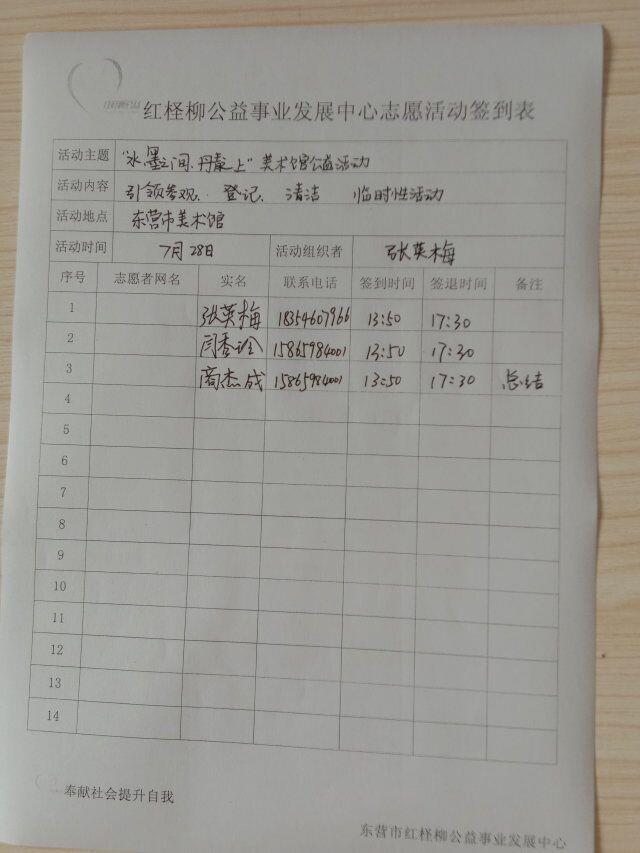 红柽柳公益事业发展中心志愿活动签到表
活动主题 "水墨之间、丹青之上"美术馆公益活动
活动内容 引领参观、登记、清洁 临时性活动
活动地点 东营市美术馆
活动时间 7月28日 活动组织者 张英梅
序号 志愿者网名 实名 联系电话 签到时间 签退时间 备注
1 张英梅 18354607966 13:50 17:30
2 闫香玲 15865984001 13:50 17:30
3 商杰成 15865984001 13:50 17:30 总结
4
5
6
7
8
9
10
11
12
13
14
奉献社会提升自我
东营市红柽柳公益事业发展中心